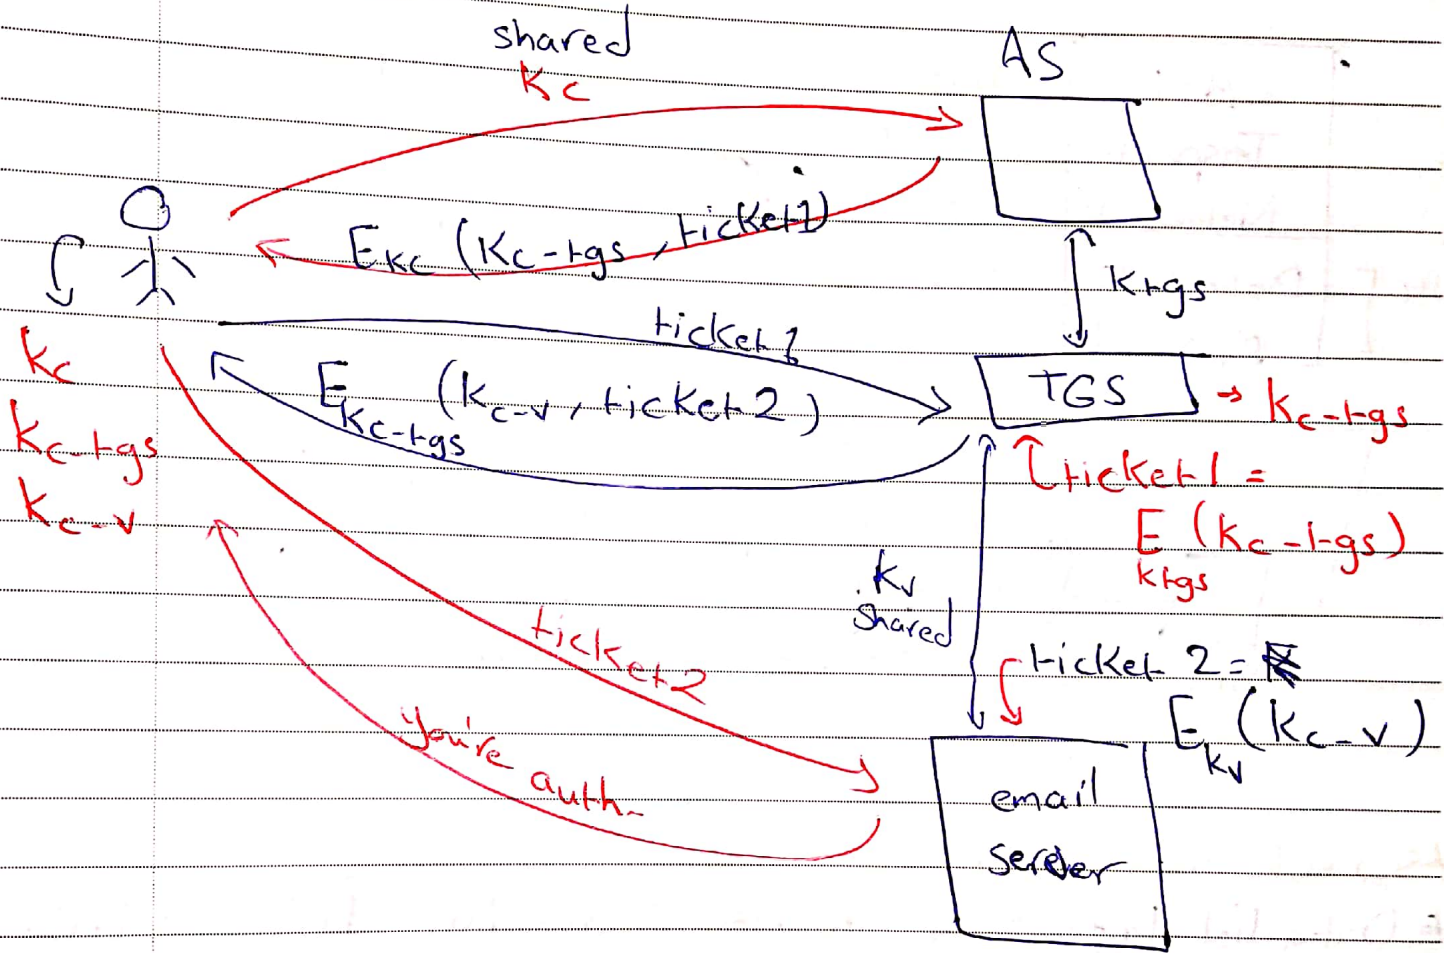 shared
Kc
AS
E Kc (Kc-tgs, ticket1)
Ktgs
ticket1
TGS → Kc-tgs
E Kc-tgs (Kc-v, ticket2)
Kc
Kc-tgs
Kc-v
ticket1 =
E Ktgs (Kc-tgs)
Kv
shared
ticket2
ticket 2 =
E Kv (Kc-v)
you're
auth.
email
server